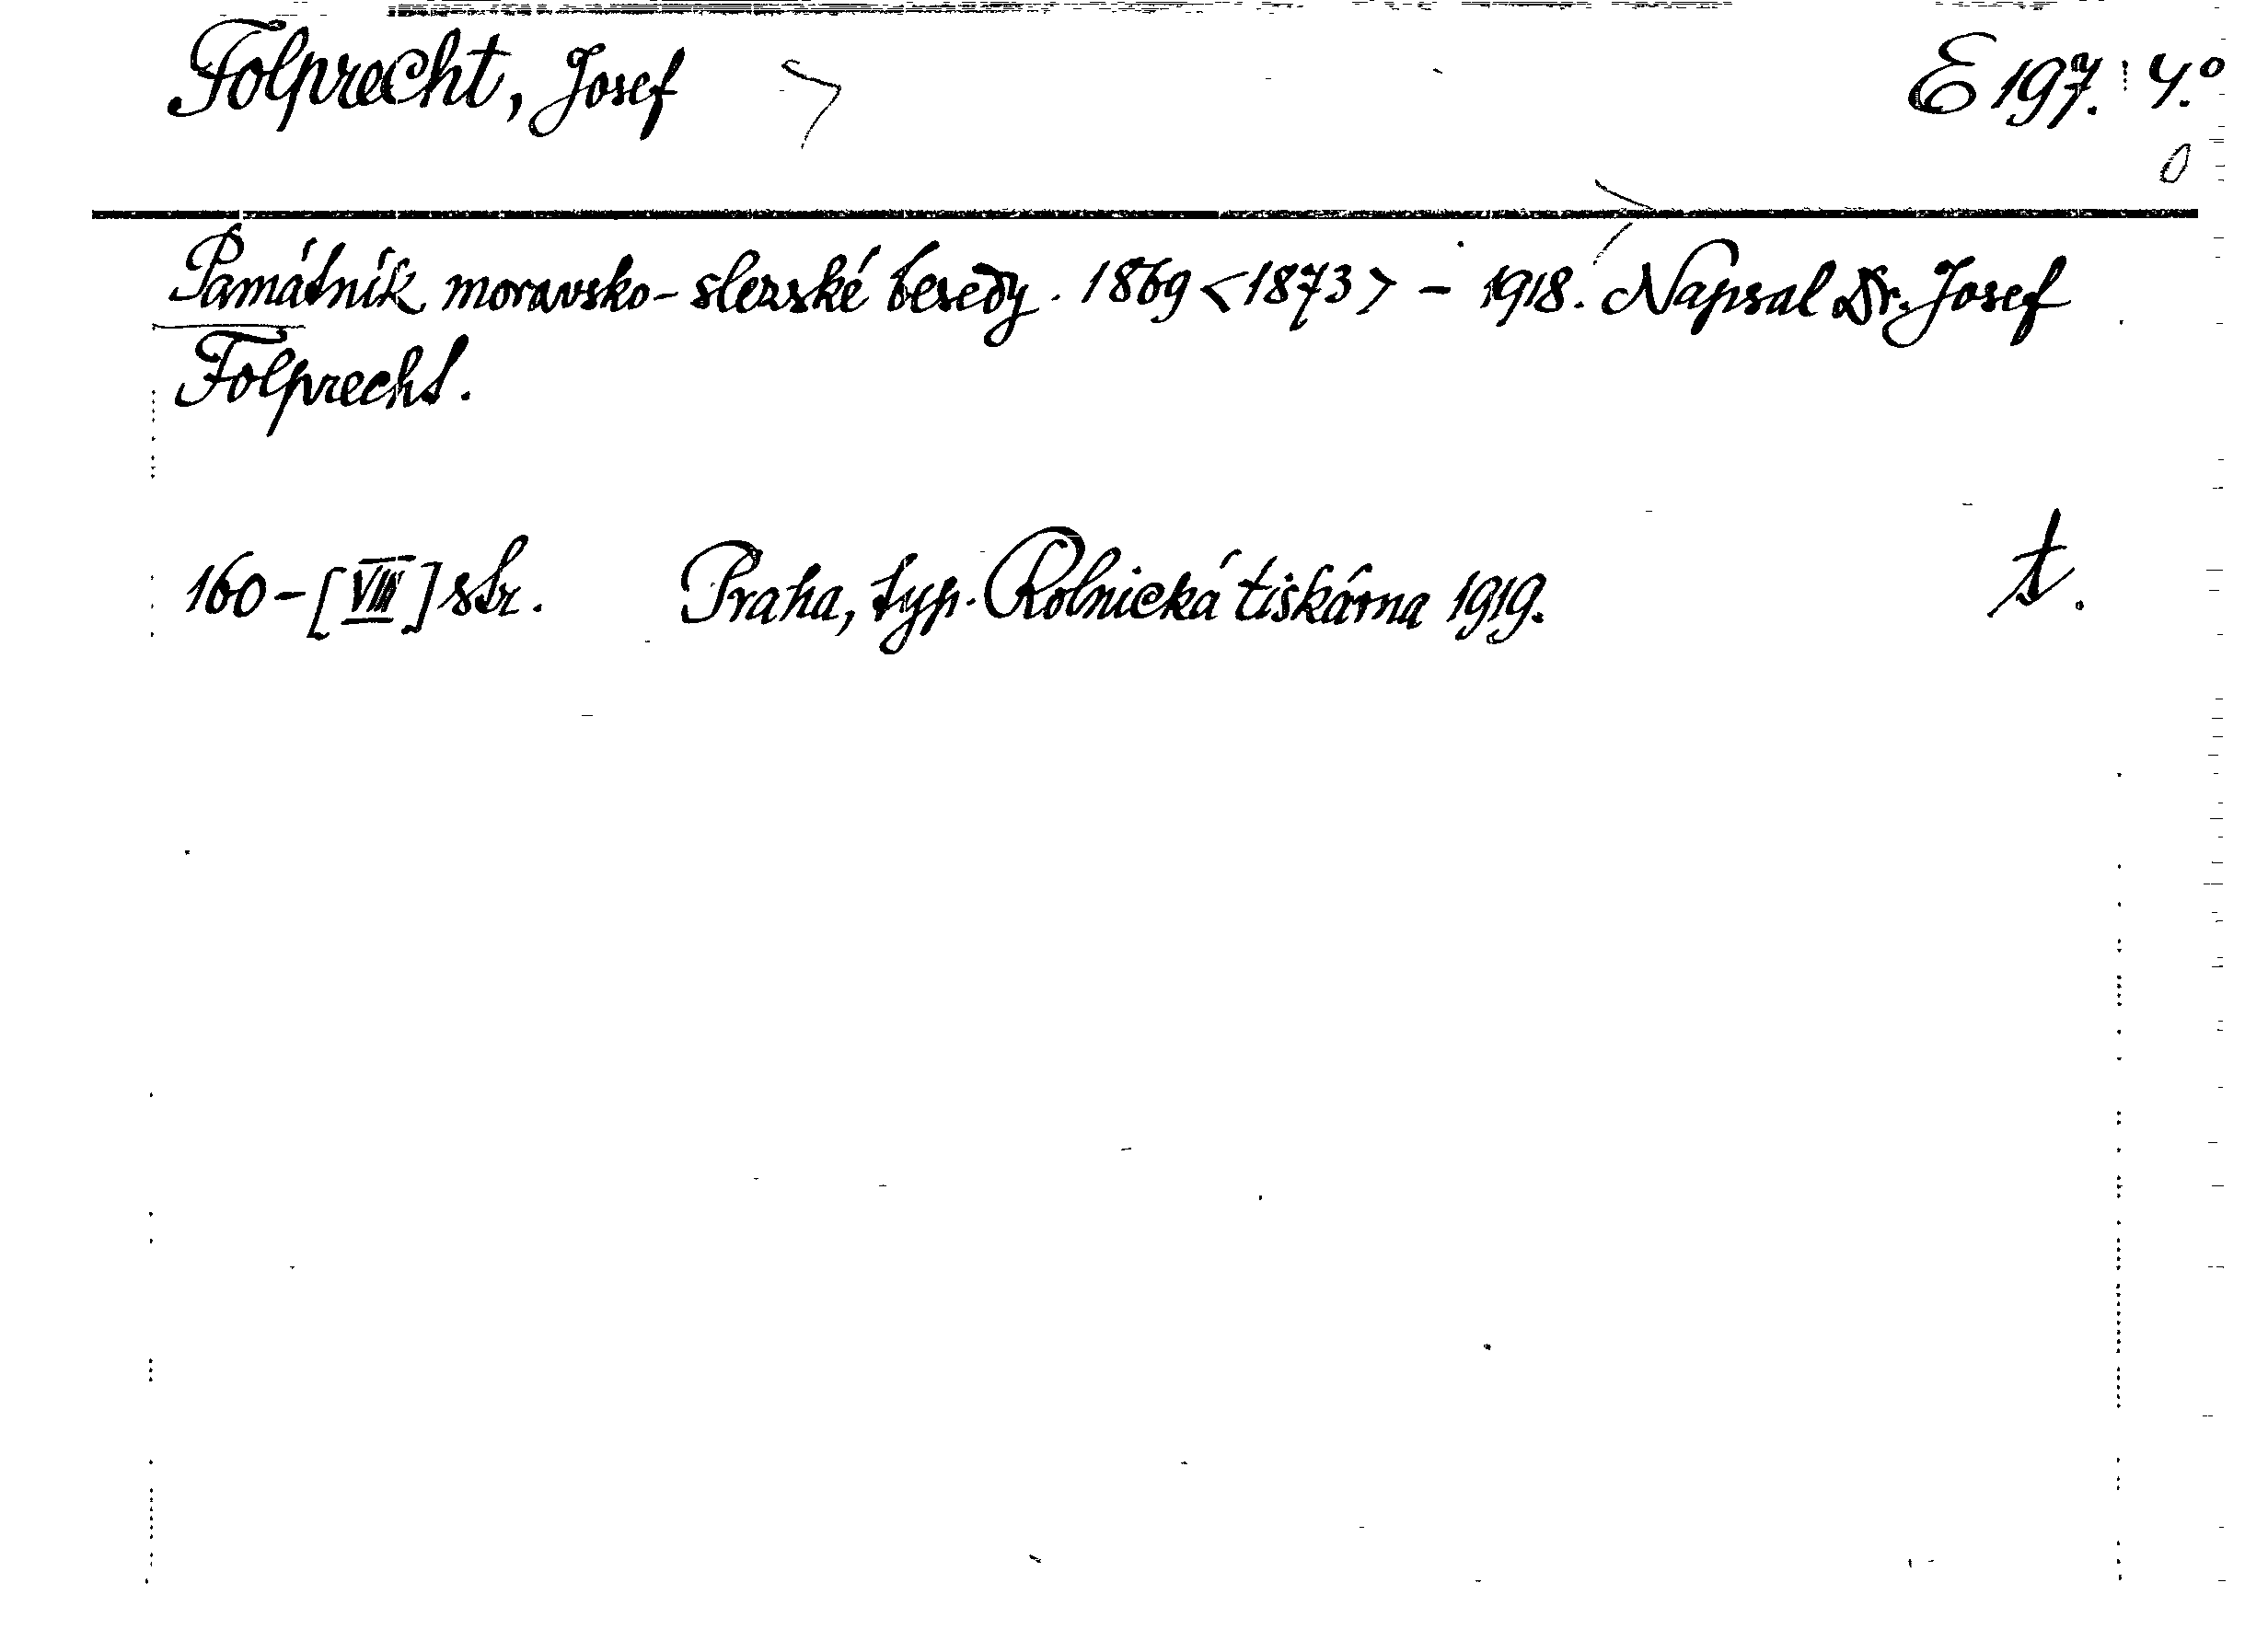 Folprecht, Josef E 197. 4.°
Památník moravsko-slezské besedy. 1869 <1873> - 1918. Napsal Dr. Josef
Folprecht.
160-[VIII] str. Praha, typ. Rolnická tiskárna 1919. t.